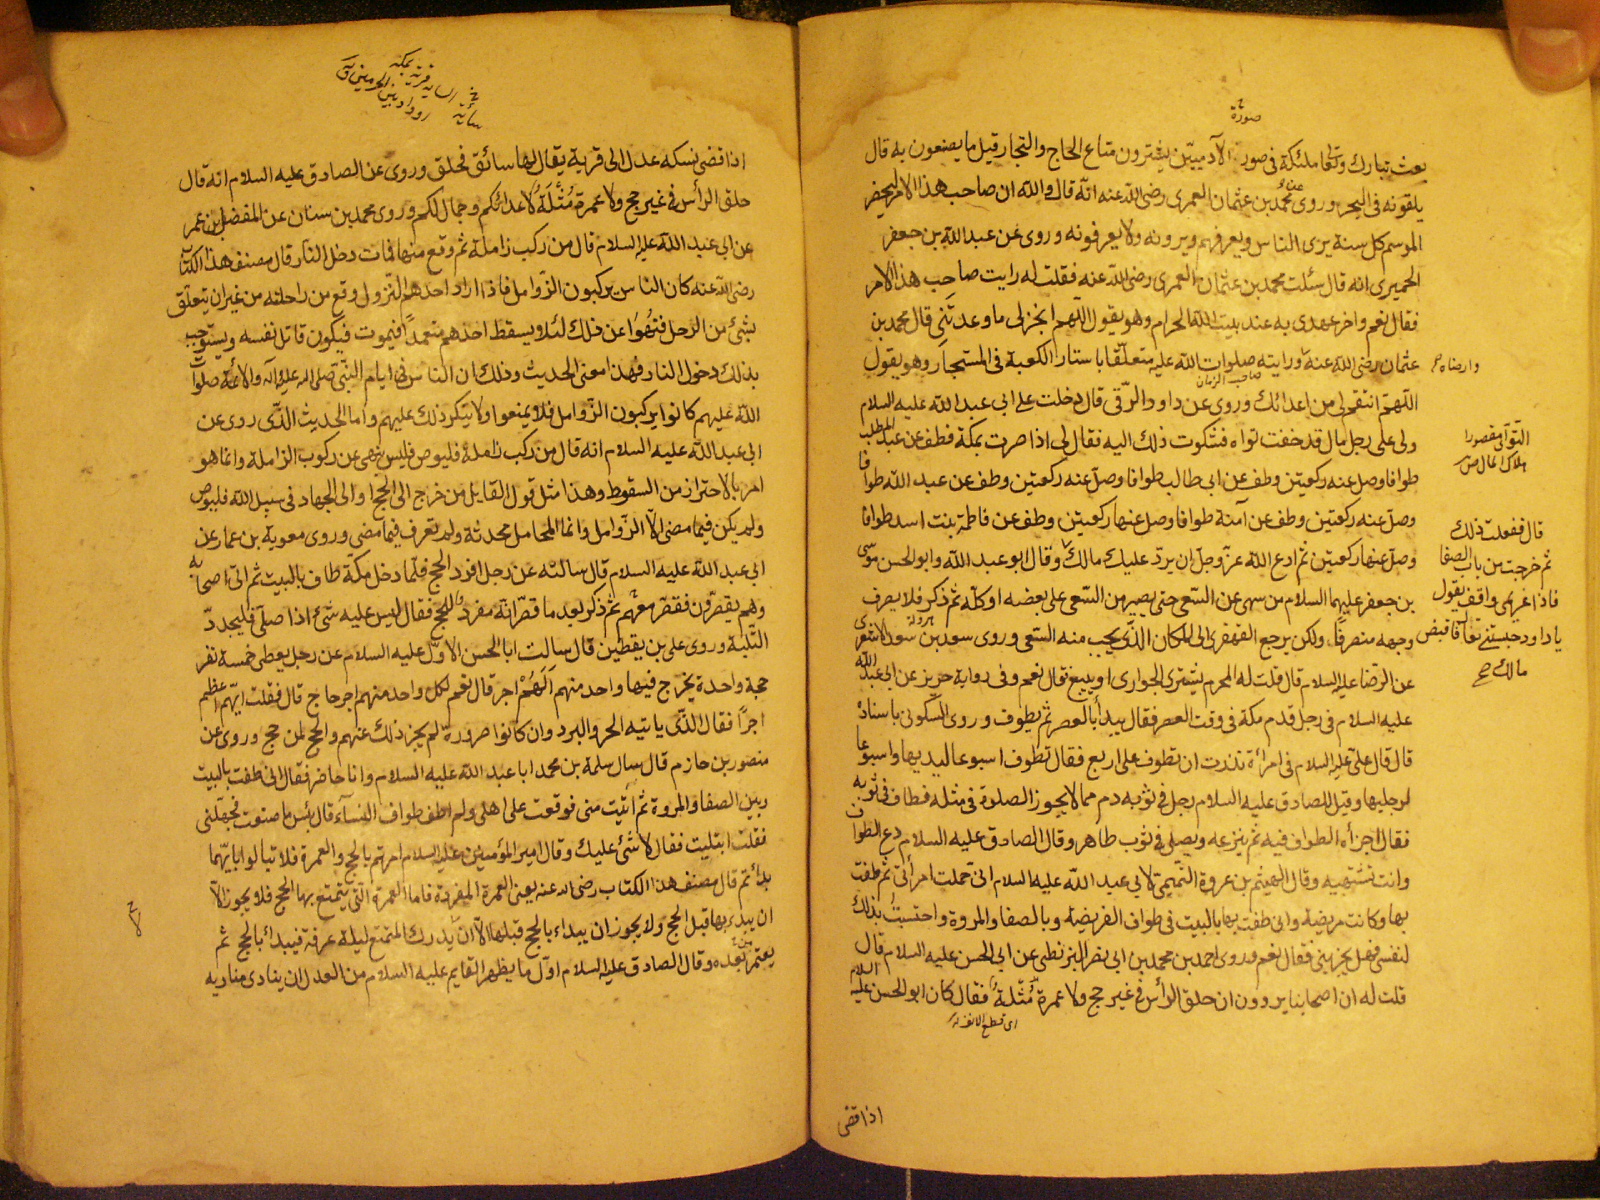 صورة
بعث تبارك وتعالى ملئكة في صور الآدميين يشترون متاع الحاج والتجار قيل ما يصنعون به قال
يلقونه في البحر وروى عن محمد بن عثمان العمري رضى الله عنه انه قال والله ان صاحب هذا الامر ليحضر
الموسم كل سنة يرى الناس ويعرفهم ويرونه ولا يعرفونه وروى عن عبد الله بن جعفر
الحميرى انه قال سئلت محمد بن عثمان العمري رضى الله عنه فقلت له رايت صاحب هذا الامر
فقال نعم واخر عهدى به عند بيت الله الحرام وهو يقول اللهم انجز لى ما وعدتنى قال محمد بن
عثمان رضى الله عنه ورايته صلوات الله عليه متعلقا باستار الكعبة في المستجار وهو يقول
صاحب الزمان
اللهم انتقم لى من اعدائك وروى عن داود الرقى قال دخلت على ابى عبد الله عليه السلام
ولى على رجل مال قد خفت تواه فشكوت ذلك اليه فقال لى اذا صرت بمكة فطف عن عبد المطلب
طوافا وصل عنه ركعتين وطف عن ابى طالب طوافا وصل عنه ركعتين وطف عن عبد الله طوافا
وصل عنه ركعتين وطف عن آمنة طوافا وصل عنها ركعتين وطف عن فاطمة بنت اسد طوافا
وصل عنها ركعتين ثم ادع الله عز وجل ان يرد عليك مالك وقال ابو عبد الله وابو الحسن موسى
بن جعفر عليهما السلام من سهى عن السعى حتى يصير من السعى على بعضه او كله ثم ذكر فلا يصرف
وجهه منصرفا ولكن يرجع القهقرى الى المكان الذى يجب منه السعى وروى سعد بن سعد الاشعرى
هرولة
عن الرضا عليه السلام قال قلت له المحرم يشترى الجوارى او يبيع فقال نعم وفى رواية حريز عن ابى عبد الله
عليه السلام في رجل قدم مكة في وقت العصر فقال يبدأ بالعصر ثم يطوف وروى السكونى باسناده
قال قال على عليه السلام في امرأة نذرت ان تطوف على اربع فقال تطوف اسبوعا ليديها واسبوعا
لرجليها وقيل للصادق عليه السلام رجل في ثوبه دم مما لا يجوز الصلوة في مثله فطاف في ثوبه
فقال اجزأه الطواف فيه ثم ينزعه ويصلى في ثوب طاهر وقال الصادق عليه السلام دع الطواف
وانت تشتهيه وقال الهيثم بن عروة التميمى لابى عبد الله عليه السلام انى حملت امرأتى ثم طفت
بها وكانت مريضة وانى طفت بها بالبيت في طواف الفريضة وبالصفا والمروة واحتسبت بذلك
لنفسى فهل يجزينى فقال نعم وروى احمد بن محمد بن ابى نصر البزنطى عن ابى الحسن عليه السلام قال
قلت له ان اصحابنا يروون ان حلق الرأس في غير حج ولا عمرة مثلة فقال كان ابو الحسن عليه السلام
اى قطع الانف
اذا قضى
وارضاه
التوى مقصورا
هلاك المال ص
قال ففعلت ذلك
ثم خرجت من باب الصفا
فاذا غريمى واقف يقول
يا داود حبستنى تعال فاقبض
مالك صح
اذا قضى نسكه عدل الى قرية يقال لها سائق فحلق وروى عن الصادق عليه السلام انه قال
حلق الرأس في غير حج ولا عمرة مثلة لاعدائكم وجمال لكم وروى محمد بن سنان عن المفضل بن عمر
عن ابى عبد الله عليه السلام قال من ركب زاملة ثم وقع منها فمات دخل النار قال مصنف هذا الكتاب
رضى الله عنه كان الناس يركبون الزوامل فاذا اراد احدهم النزول وقع من راحلته من غير ان يتعلق
بشئ من الرحل فنهوا عن ذلك لئلا يسقط احدهم متعمدا فيموت فيكون قاتل نفسه ويستوجب
بذلك دخول النار فهذا معنى الحديث وذلك ان الناس في ايام النبى صلى الله عليه وآله والائمة صلوات
الله عليهم كانوا يركبون الزوامل فلا يمنعوا ولا ينكر ذلك عليهم واما الحديث الذى روى عن
ابى عبد الله عليه السلام انه قال من ركب زاملة فليوص فليس بنهى عن ركوب الزاملة وانما هو
امر بالاحتراز من السقوط وهذا مثل قول القايل من خرج الى الحج او الى الجهاد في سبيل الله فليوص
ولم يكن فيما مضى الا الزوامل وانما المحامل محدثة ولم تعرف فيما مضى وروى معوية بن عمار عن
ابى عبد الله عليه السلام قال سالته عن رجل افرد الحج فلما دخل مكة طاف بالبيت ثم اتى اصحابه
وهم يقصرون فقصر معهم ثم ذكر بعد ما قصر انه مفرد للحج فقال ليس عليه شئ اذا صلى فليجدد
التلبية وروى على بن يقطين قال سالت ابا الحسن الاول عليه السلام عن رجل يعطى خمسة نفر
حجة واحدة يخرج فيها واحد منهم الهم اجر قال نعم لكل واحد منهم اجر حاج قال فقلت ايهم اعظم
اجرا فقال الذى يابيته الحر والبرد وان كانوا صرورة لم يجز ذلك عنهم والحج لمن حج وروى عن
منصور بن حازم قال سال سلمة بن محمد ابا عبد الله عليه السلام وانا حاضر فقال انى طفت بالبيت
وبين الصفا والمروة ثم اتيت منى فوقعت على اهلى ولم اطف طواف النساء قال بئس ما صنعت فجهلنى
فقلت ابتليت فقال لا شئ عليك وقال امير المؤمنين عليه السلام امرتم بالحج والعمرة فلا تبالوا بايهما
بدأتم قال مصنف هذا الكتاب رضى الله عنه يعنى العمرة المفردة فاما العمرة التى يتمتع بها الحج فلا يجوز الا
ان يبدء بها قبل الحج ولا يجوز ان يبداء بالحج قبلها الا ان يدرك المتمتع ليلة عرفة فيبدأ بالحج ثم
يعتمر من بعده وقال الصادق عليه السلام اول ما يظهر القايم عليه السلام من العدل ان ينادى مناديه